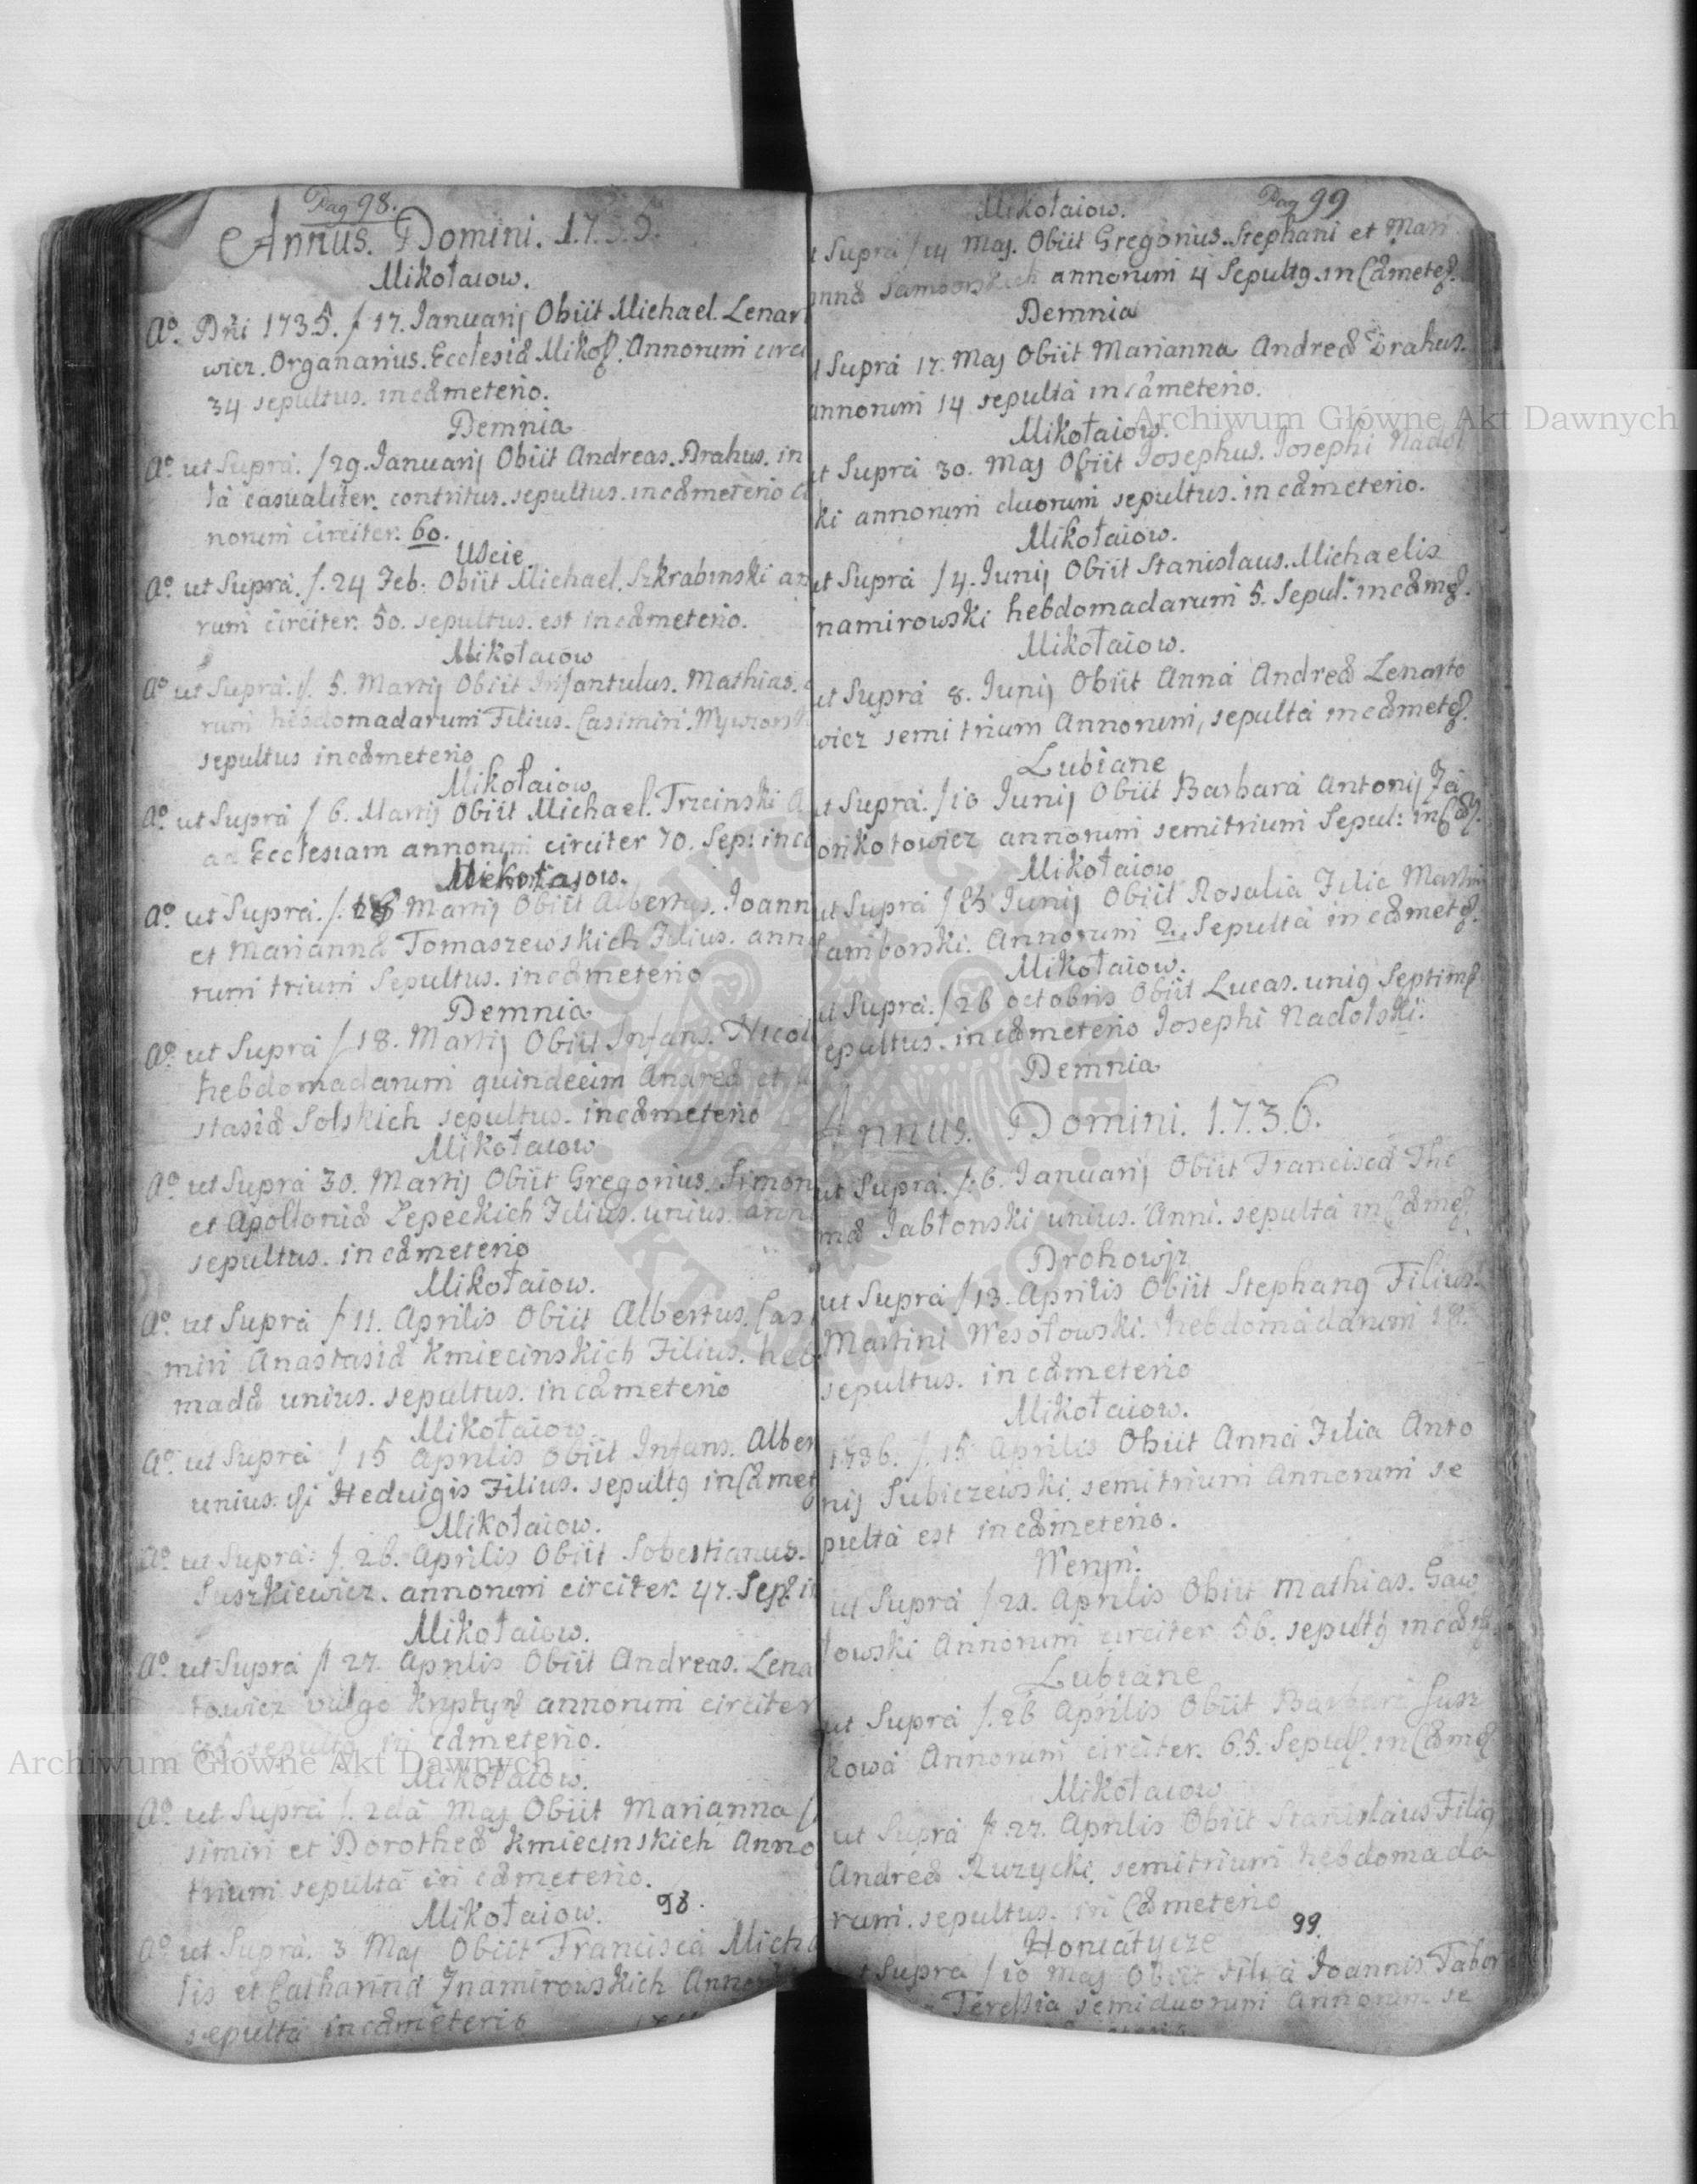 Pag 98.
Annus. Domini. 1.7.3.5.
Mikołaiow.
Aº. Dñi 1735. / 17. Januarij Obiit Michael. Lenar
wicz. Organarius. Ecclesiæ Mikoł. Annorum circi
34 sepultus. in cæmeterio.
Demnia
Aº. ut Supra. / 29. Januarij Obiit Andreas. Drahus. in
casualiter. contritus. sepultus. in cæmeterio
norum circiter. 60.
Uscie.
Aº. ut Supra. /. 24 Feb: Obiit Michael. Szkrabinski an
rum circiter. 50. sepultus. est in cæmeterio.
Mikołaiow
Aº ut Supra. /. 5. Martij Obiit Infantulus. Mathias.
rum hebdomadarum Filius. Casimiri.
sepultus in cæmeterio
Mikołaiow
Aº. ut Supra / 6. Martij Obiit Michael. Trzcinski
ad Ecclesiam annorum circiter 70. Sep: in cæ
Mikołaiow.
Aº ut Supra. /. Martij Obiit Albertus. Joann
et Mariannæ Tomaszewskich Filius. anno
rum trium Sepultus. in cæmeterio
Demnia
Aº. ut Supra / 18. Martij Obiit Infans. Nicol
hebdomadarum quindecim Andreæ et
stasiæ Solskich sepultus. in cæmeterio
Mikołaiow
Aº ut Supra 30. Martij Obiit Gregorius. Simon
et Apolloniæ Lepeckich Filius. unius. ann
sepultus. in cæmeterio
Mikołaiow.
Aº. ut Supra / 11. Aprilis Obiit Albertus. Casi
miri Anastasiæ Kmiecinskich Filius. heb
madæ unius. sepultus. in cæmeterio
Mikołaiow
Aº. ut Supra / 15 Aprilis Obiit Infans. Alber
unius. Hedvigis Filius. sepultq in Cæmet
Mikołaiow.
Aº. ut Supra: /. 26. Aprilis Obiit Sobestianus.
Suszkiewicz. annorum circiter. 47. Sep. in
Mikołaiow.
Aº ut Supra / 27. Aprilis Obiit Andreas. Lena
towicz vulgo annorum circiter
sepultq in cæmeterio.
Mikołaiow.
Aº ut Supra /. 2da Maj Obiit Marianna
simiri et Dorotheæ Kmiecinskich Anno
trium sepulta in cæmeterio.
Mikołaiow. 98.
Aº ut Supra. 3 Maj Obiit Francisca Micha
lis et Catharinæ Znamirowskich Anno
sepulta in cæmeterio
Mikołaiow. Pag 99
t Supra / 14 Maj. Obiit Gregorius. Stephani et Mari
annæ Samborskich annorum 4 Sepultq. in Cæmeter.
Demnia
t Supra 17. Maj Obiit Marianna Andreæ Drahus.
annorum 14 sepulta in cæmeterio.
Mikołaiow.
ut Supra 30. Maj Obiit Josephus. Josephi Nadol
ki annorum duorum sepultus. in cæmeterio.
Mikołaiow.
ut Supra / 4. Junij Obiit Stanislaus. Michaelis
namirowski hebdomadarum 5. Sepul: in cæm.
Mikołaiow.
ut Supra 8. Junij Obiit Anna Andreæ Lenarto
wicz semi trium Annorum, sepulta in cæmet.
Lubiane
ut Supra. / 10 Junij Obiit Barbara Antonij
annorum semitrium Sepul: in Cæ.
Mikołaiow
ut Supra / Junij Obiit Rosalia Filia Martini
Samborski. Annorum 2. Sepulta in cæmet.
Mikołaiow.
ut Supra. / 26 octobris Obiit Lucas. uniq Septim
epultus. in cæmeterio Josephi Nadolski.
Demnia
Annus. Domini. 1.7.3.6.
ut Supra. / 6. Januarij Obiit Francisca Tho
mæ Jabłonski unius. Anni. sepulta in Cæme
Drohowjz
ut Supra / 13. Aprilis Obiit Stephanq Filius.
Martini Wesołowski. hebdomadarum 18.
sepultus. in cæmeterio
Mikołaiow.
1736. /. 15. Aprilis Obiit Anna Filia Anto
nij semitrium Annorum se
pulta est in cæmeterio.
Weryn.
ut Supra / 21. Aprilis Obiit Mathias. Gaw
łowski Annorum circiter 56. sepultq in cæm
Lubiane
ut Supra /. 26 Aprilis Obiit Barbara Susz
kowa Annorum circiter. 65. Sepul. in Cæm
Mikołaiow
ut Supra /. 27. Aprilis Obiit Stanislaus Filiq
Andreæ Ruzycki. semitrium hebdomada
rum. sepultus. in Cæmeterio
99.
Horucatycze
t Supra / 10 Maj Obiit Filia Joannis Tabor
Teressia semiduorum Annorum se
Archiwum Główne Akt Dawnych
Archiwum Główne Akt Dawnych